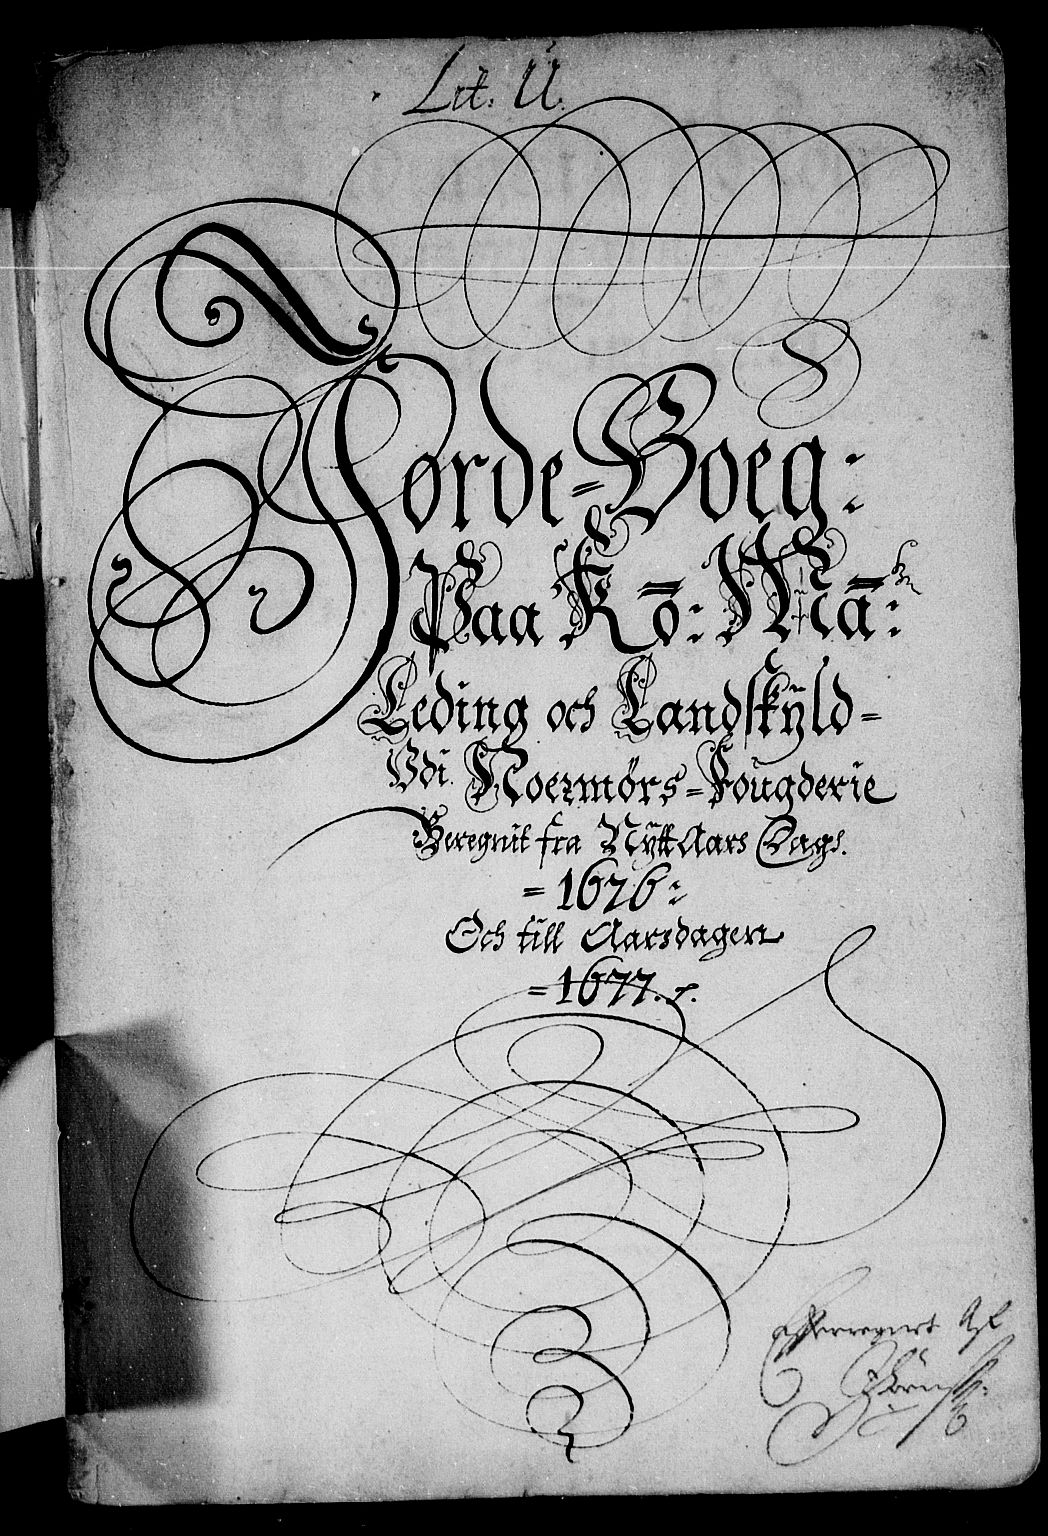 Lit: Ü.
Jorde=Boeg:
Paa Kō: Mā:
Leding och Landskÿld=
Vdi Noermørs=Fougderie
Beregnit fra NÿttAars Dags.
=1676:
Och till Aarsdagen
=1677.